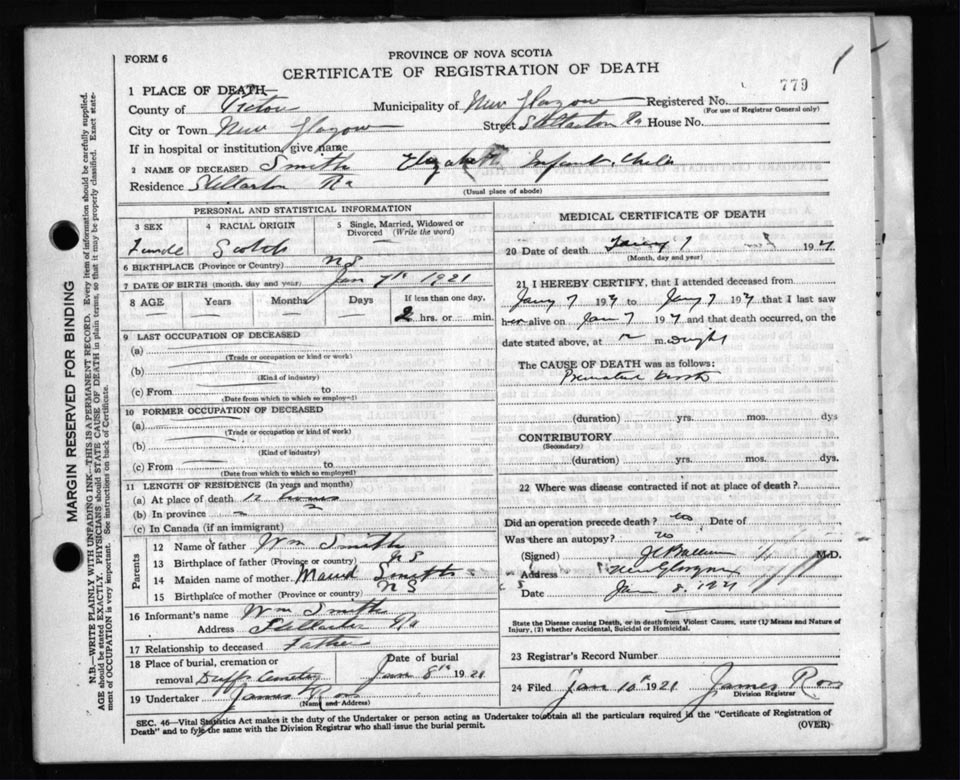 FORM 6
PROVINCE OF NOVA SCOTIA
CERTIFICATE OF REGISTRATION OF DEATH
779
1 PLACE OF DEATH
County of Pictou Municipality of New Glasgow Registered No.
(For use of Registrar General only)
City or Town New Glasgow Street Stellarton Rd House No.
If in hospital or institution, give name
2 NAME OF DECEASED Smith Elizabeth Infant Child
Residence Stellarton Rd
(Usual place of abode)
PERSONAL AND STATISTICAL INFORMATION
3 SEX 4 RACIAL ORIGIN 5 Single, Married, Widowed or Divorced (Write the word)
Female Scotch
6 BIRTHPLACE (Province or Country) NS
7 DATE OF BIRTH (month, day and year) Jan 7th 1921
8 AGE Years Months Days If less than one day,
2 hrs. or min.
9 LAST OCCUPATION OF DECEASED
(a)
(Trade or occupation or kind of work)
(b)
(Kind of industry)
(c) From to
(Date from which to which so employed)
10 FORMER OCCUPATION OF DECEASED
(a)
(Trade or occupation or kind of work)
(b)
(Kind of industry)
(c) From to
(Date from which to which so employed)
11 LENGTH OF RESIDENCE (In years and months)
(a) At place of death 12 hours
(b) In province
(c) In Canada (if an immigrant)
Parents
12 Name of father Wm Smith
13 Birthplace of father (Province or country) NS
14 Maiden name of mother Maud Smith
15 Birthplace of mother (Province or Country) NS
16 Informant's name Wm Smith
Address Stellarton Rd
17 Relationship to deceased Father
18 Place of burial, cremation or removal Duffs Cemetery Date of burial Jan 8th 1921
19 Undertaker James Ross
(Name and Address)
MEDICAL CERTIFICATE OF DEATH
20 Date of death Janry 7 1921
(Month, day and year)
21 I HEREBY CERTIFY, that I attended deceased from
Janry 7 1921 to Janry 7 1921 that I last saw
her alive on Jan 7 1921 and that death occurred, on the
date stated above, at m.
The CAUSE OF DEATH was as follows:
Premature birth
(duration) yrs. mos. dys
CONTRIBUTORY
(Secondary)
(duration) yrs. mos. dys.
22 Where was disease contracted if not at place of death?
Did an operation precede death? no Date of
Was there an autopsy? no
(Signed) M.D.
Address New Glasgow
Date Jan 8. 1921
State the Disease causing Death, or in death from Violent Causes, state (1) Means and Nature of
Injury, (2) whether Accidental, Suicidal or Homicidal.
23 Registrar's Record Number
24 Filed Jan 10th 1921 James Ross
Division Registrar
SEC. 46—Vital Statistics Act makes it the duty of the Undertaker or person acting as Undertaker to obtain all the particulars required in the "Certificate of Registration of
Death" and to file the same with the Division Registrar who shall issue the burial permit.
(OVER)
MARGIN RESERVED FOR BINDING
N.B.—WRITE PLAINLY WITH UNFADING INK—THIS IS A PERMANENT RECORD. Every item of information should be carefully supplied.
AGE should be stated EXACTLY. PHYSICIANS should STATE CAUSE OF DEATH in plain terms, so that it may be properly classified. Exact state-
ment of OCCUPATION is very important. See instructions on back of Certificate.